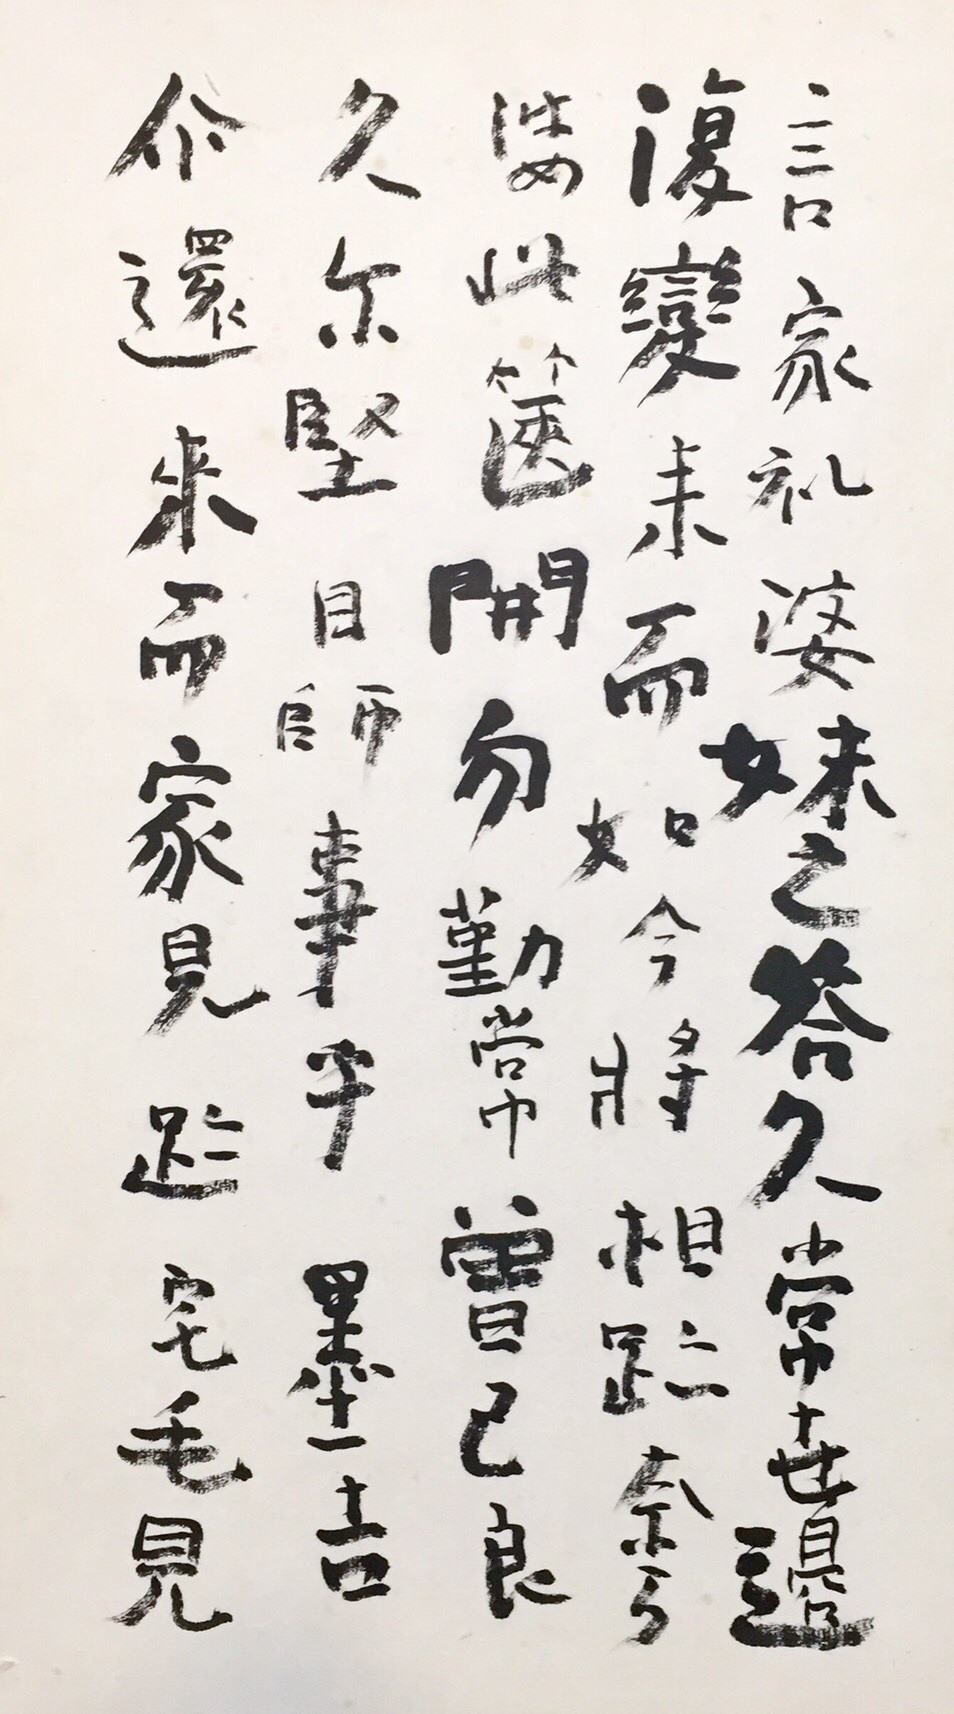 言家礼婆妹之答久常世邊
復變未而如今將相趾奈何
婆此篋開勿勤常曾已良
久尔堅目師事乎墨吉
尒還来而家見趾宅毛見